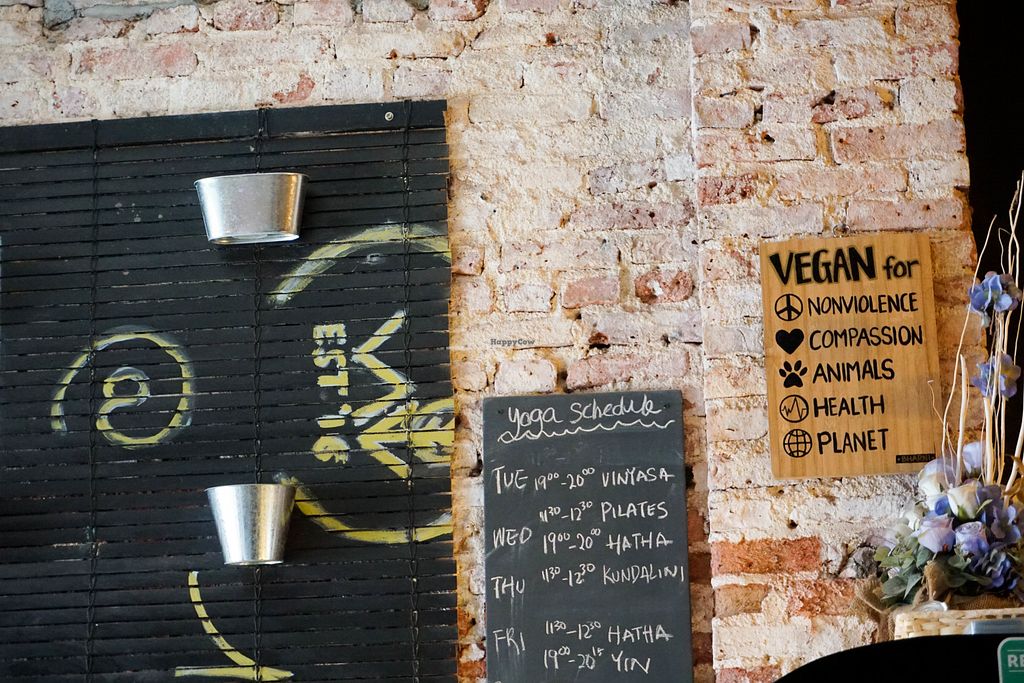 EST. 16
HappyCow
yoga schedule
TUE 19⁰⁰-20⁰⁰ VINYASA
11³⁰-12³⁰ PILATES
WED 19⁰⁰-20⁰⁰ HATHA
THU 11³⁰-12³⁰ KUNDALINI
FRI 11³⁰-12³⁰ HATHA
19⁰⁰-20¹⁵ YIN
VEGAN for
NONVIOLENCE
COMPASSION
ANIMALS
HEALTH
PLANET
RE